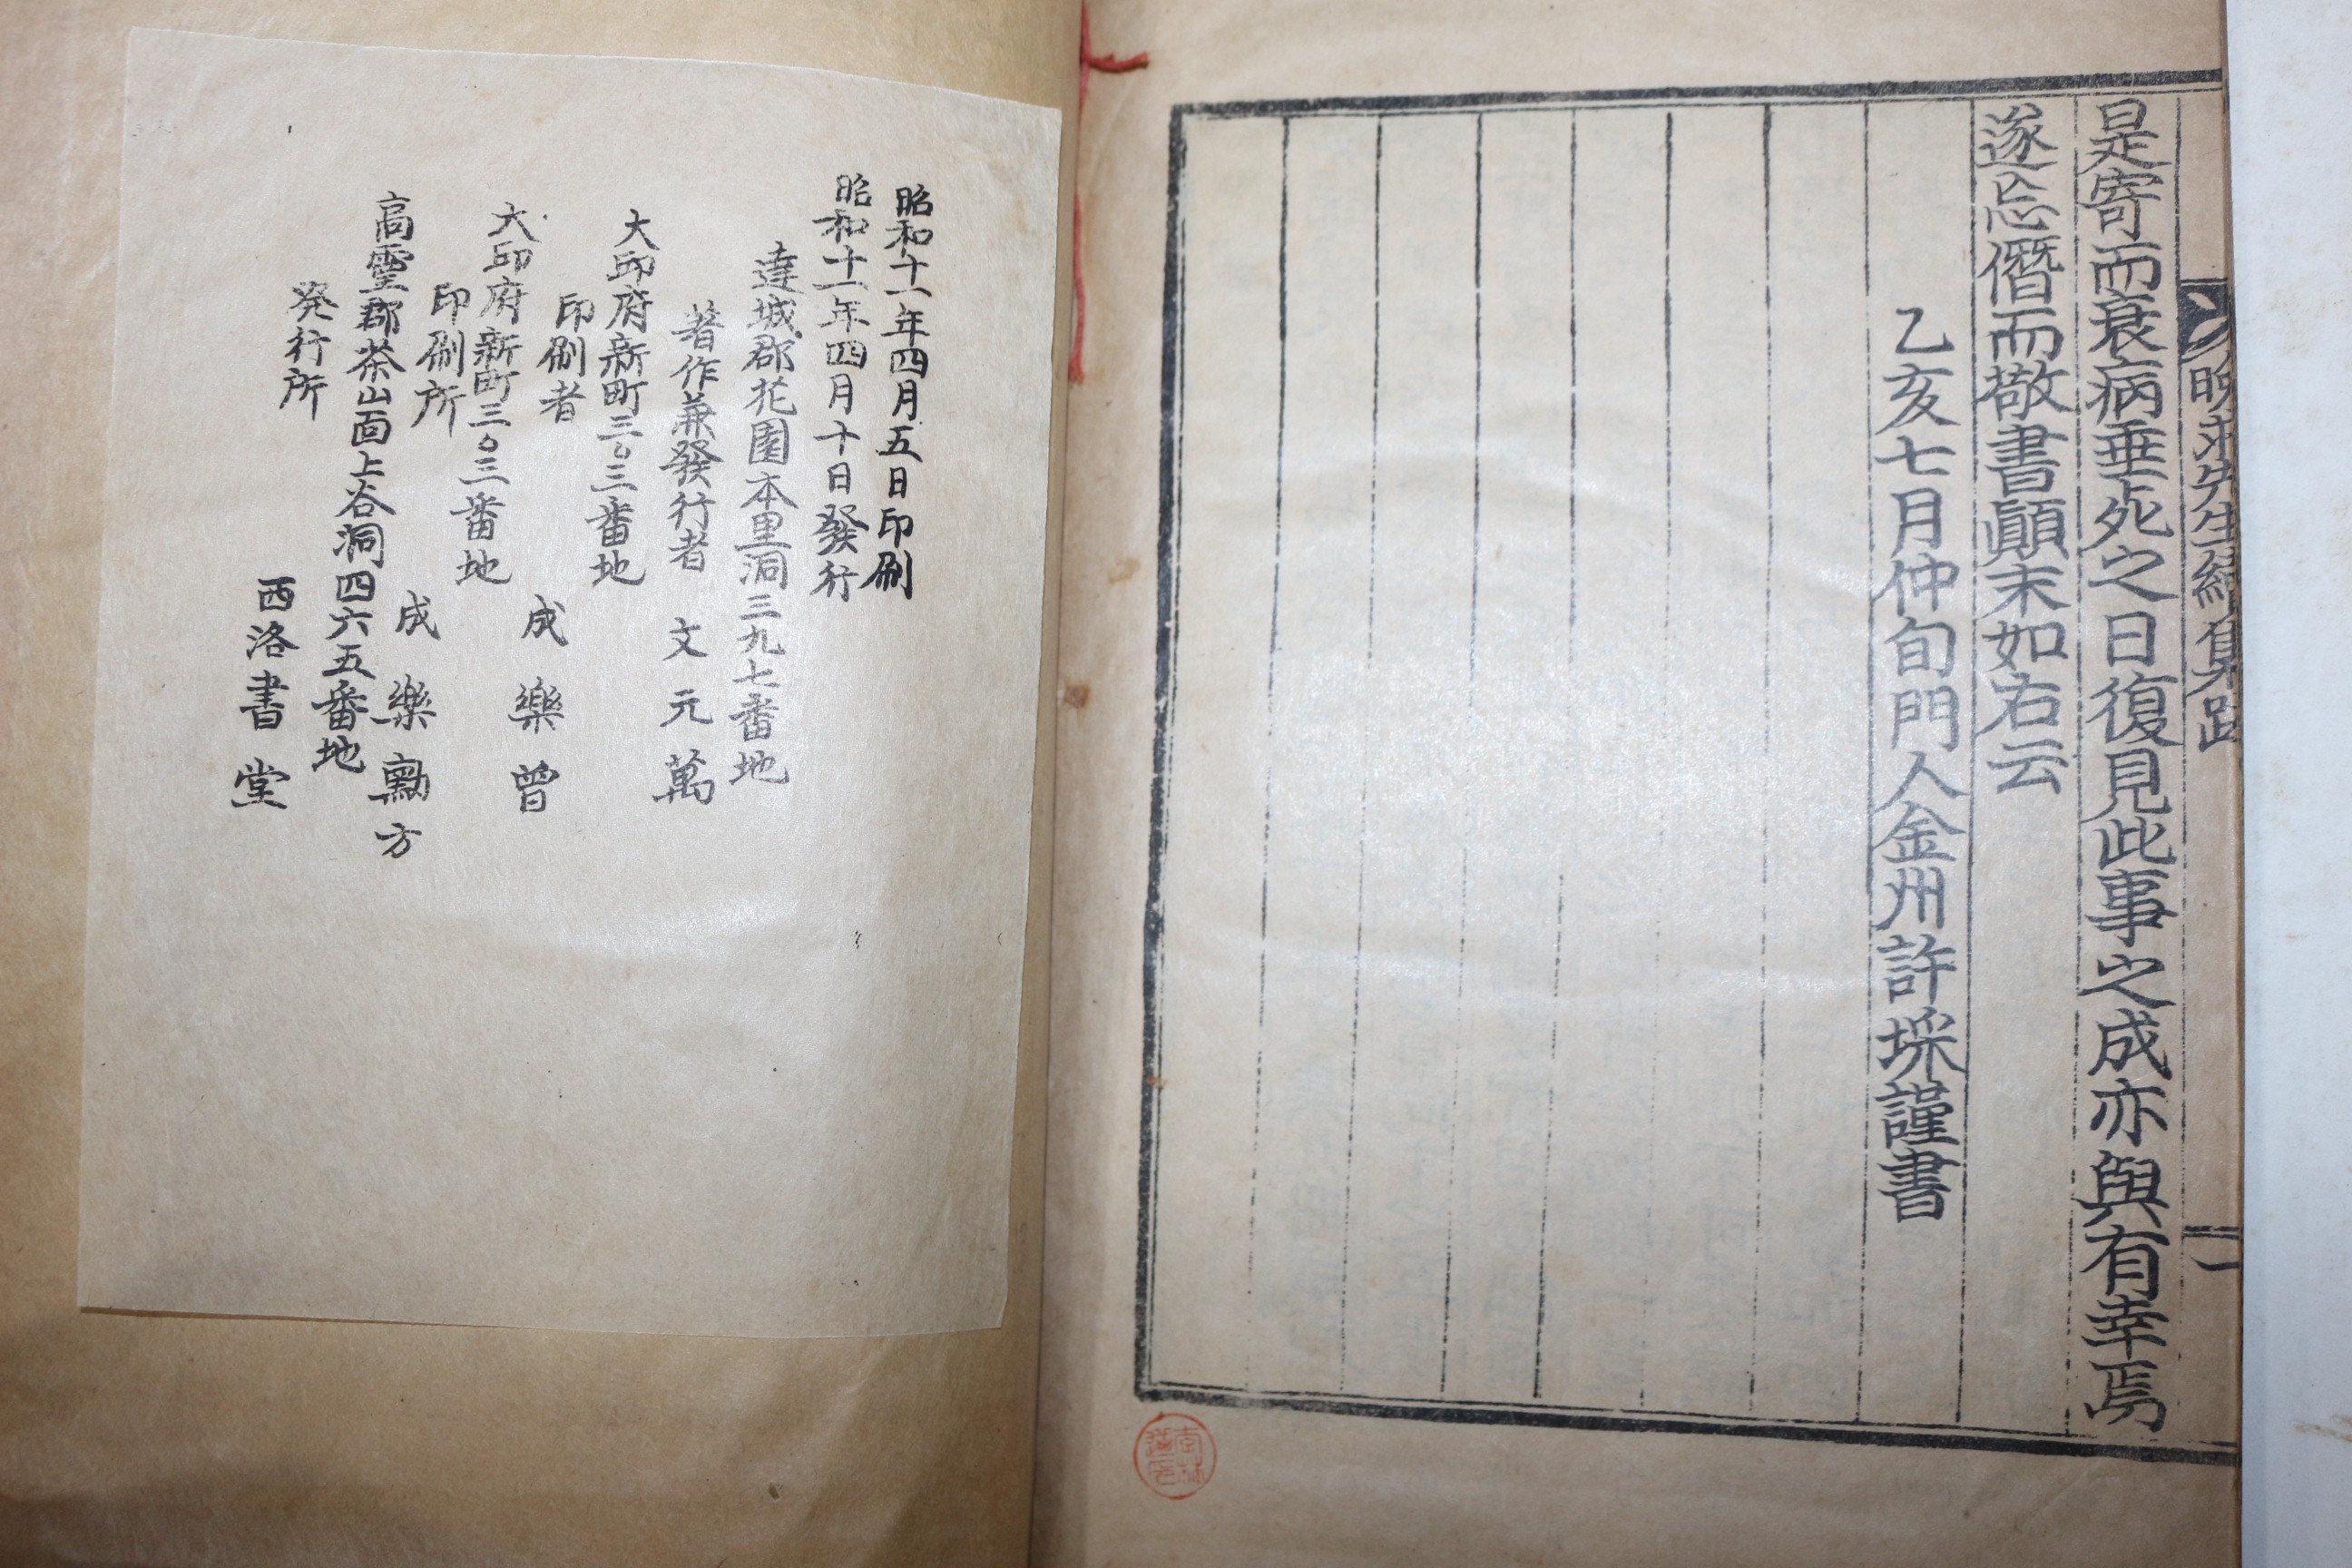 晩求先生續集跋
一
是寄而衰病垂死之日復見此事之成亦與有幸焉
遂忘僭而敬書顚末如右云
乙亥七月仲旬門人金州許埰謹書
昭和十一年四月五日印刷
昭和十一年四月十日發行
達城郡花園本里洞三九七番地
著作兼發行者 文元萬
大邱府新町三〇三番地
印刷者 成樂曾
大邱府新町三〇三番地
印刷所 成樂勳方
高霊郡茶山面上谷洞四六五番地
発行所 西洛書堂